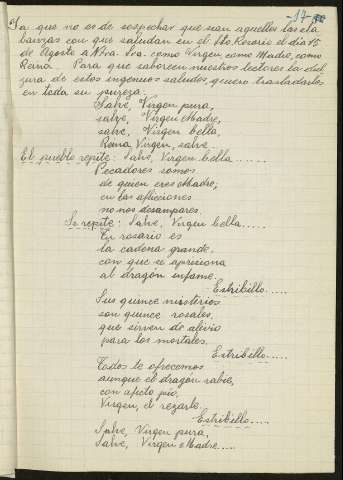 -17-
Ya que no es de sospechar que sean aquellos las ala
banzas con que saludan en el Sto. Rosario el día 15
de Agosto a Ntra. Sra. como Virgen como Madre, como
Reina. Para que saboreen nuestros lectores la dul
zura de estos ingenuos saludos, quiero trasladarlos
en toda su pureza.
Salve, Virgen pura,
salve, Virgen Madre,
salve, Virgen bella,
Reina Virgen, salve.
El pueblo repite: Salve, Virgen bella......
Pecadores somos
de quien eres Madre,
en las aflicciones
no nos desampares.
Se repite: Salve, Virgen bella.....
Tu rosario es
la cadena grande
con que se aprisiona
al dragón infame.
Estribillo.....
Sus quince misterios
son quince rosales,
que sirven de alivio
para los mortales.
Estribillo.....
Todos te ofrecemos
aunque el dragón rabie,
con afecto pío,
Virgen, el rezarlo.
Estribillo.....
Salve, Virgen pura,
Salve, Virgen Madre.....